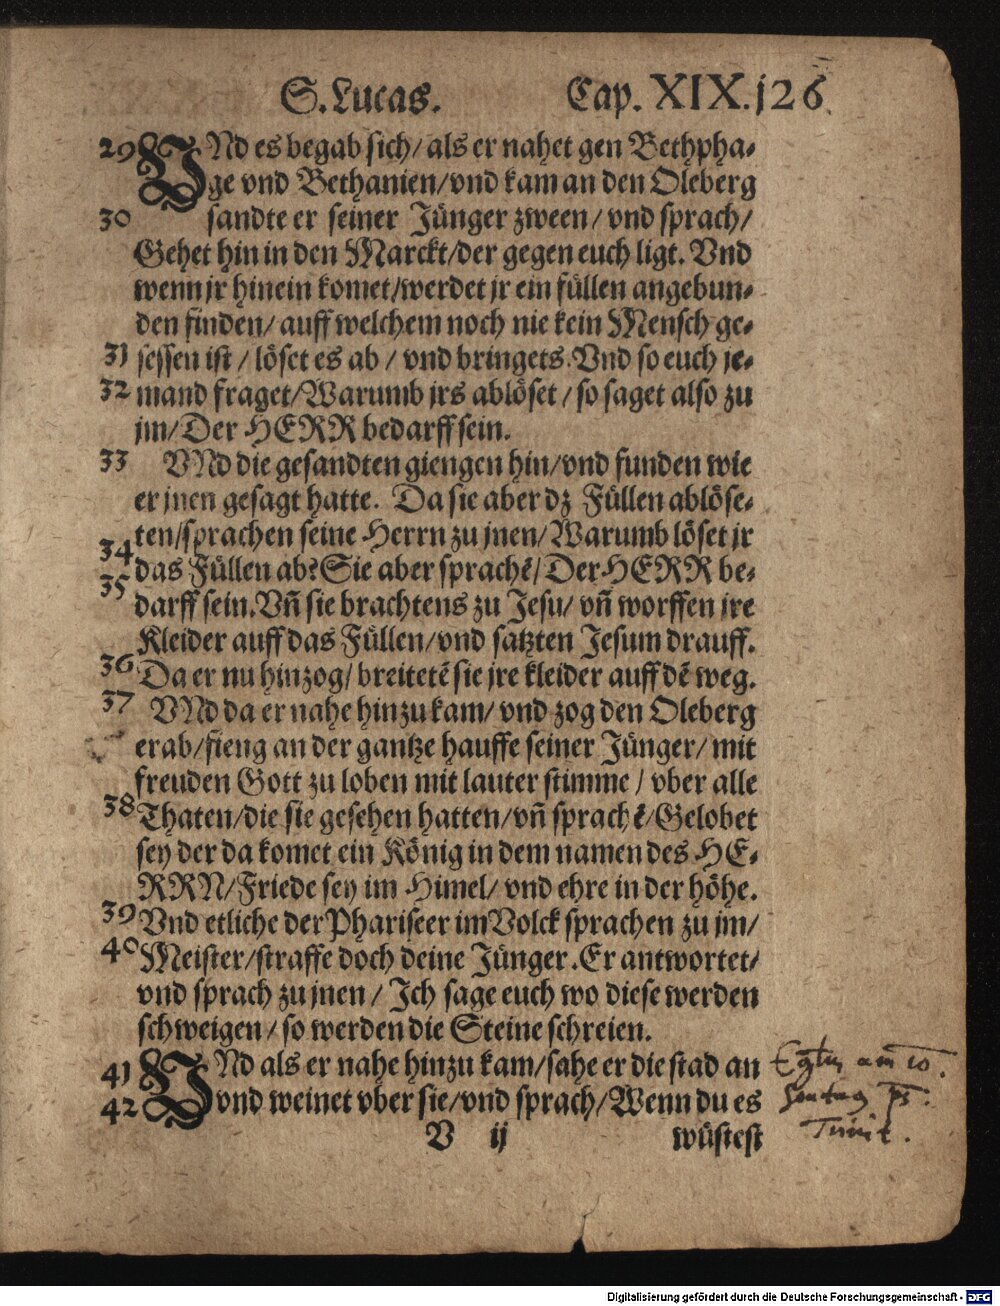 S. Lucas. Cap. XIX. 126
29 VNd es begab sich/ als er nahet gen Bethpha-
ge vnd Bethanien/vnd kam an den Oleberg
30 sandte er seiner Jünger zween/ vnd sprach/
Gehet hin in den Marckt/der gegen euch ligt. Vnd
wenn jr hinein komet/werdet jr ein füllen angebun-
den finden/ auff welchem noch nie kein Mensch ge-
31 sessen ist / löset es ab / vnd bringets. Vnd so euch je-
32 mand fraget/Warumb jrs ablöset / so saget also zu
jm/Der HERR bedarff sein.
33 VNd die gesandten giengen hin/vnd funden wie
er jnen gesagt hatte. Da sie aber dz Füllen ablöse-
34 ten/sprachen seine Herrn zu jnen/Warumb löset jr
das Füllen ab? Sie aber sprachē/ Der HERR be-
35 darff sein. Vñ sie brachtens zu Jesu/ vñ worffen jre
Kleider auff das Füllen/vnd satzten Jesum drauff.
36 Da er nu hinzog/ breitetē sie jre kleider auff dē weg.
37 VNd da er nahe hinzu kam/ vnd zog den Oleberg
erab/fieng an der gantze hauffe seiner Jünger/ mit
freuden Gott zu loben mit lauter stimme / vber alle
38 Thaten/die sie gesehen hatten/vñ sprachē/Gelobet
sey der da komet ein König in dem namen des HE-
RRN/Friede sey im Himel/ vnd ehre in der höhe.
39 Vnd etliche der Phariseer im Volck sprachen zu jm/
40 Meister/straffe doch deine Jünger. Er antwortet/
vnd sprach zu jnen / Ich sage euch wo diese werden
schweigen / so werden die Steine schreien.
41 VNd als er nahe hinzu kam/sahe er die stad an
42 vnd weinet vber sie/vnd sprach/Wenn du es
V ij wüstest
am 10.
Sontag
Trinit.
Digitalisierung gefördert durch die Deutsche Forschungsgemeinschaft - DFG